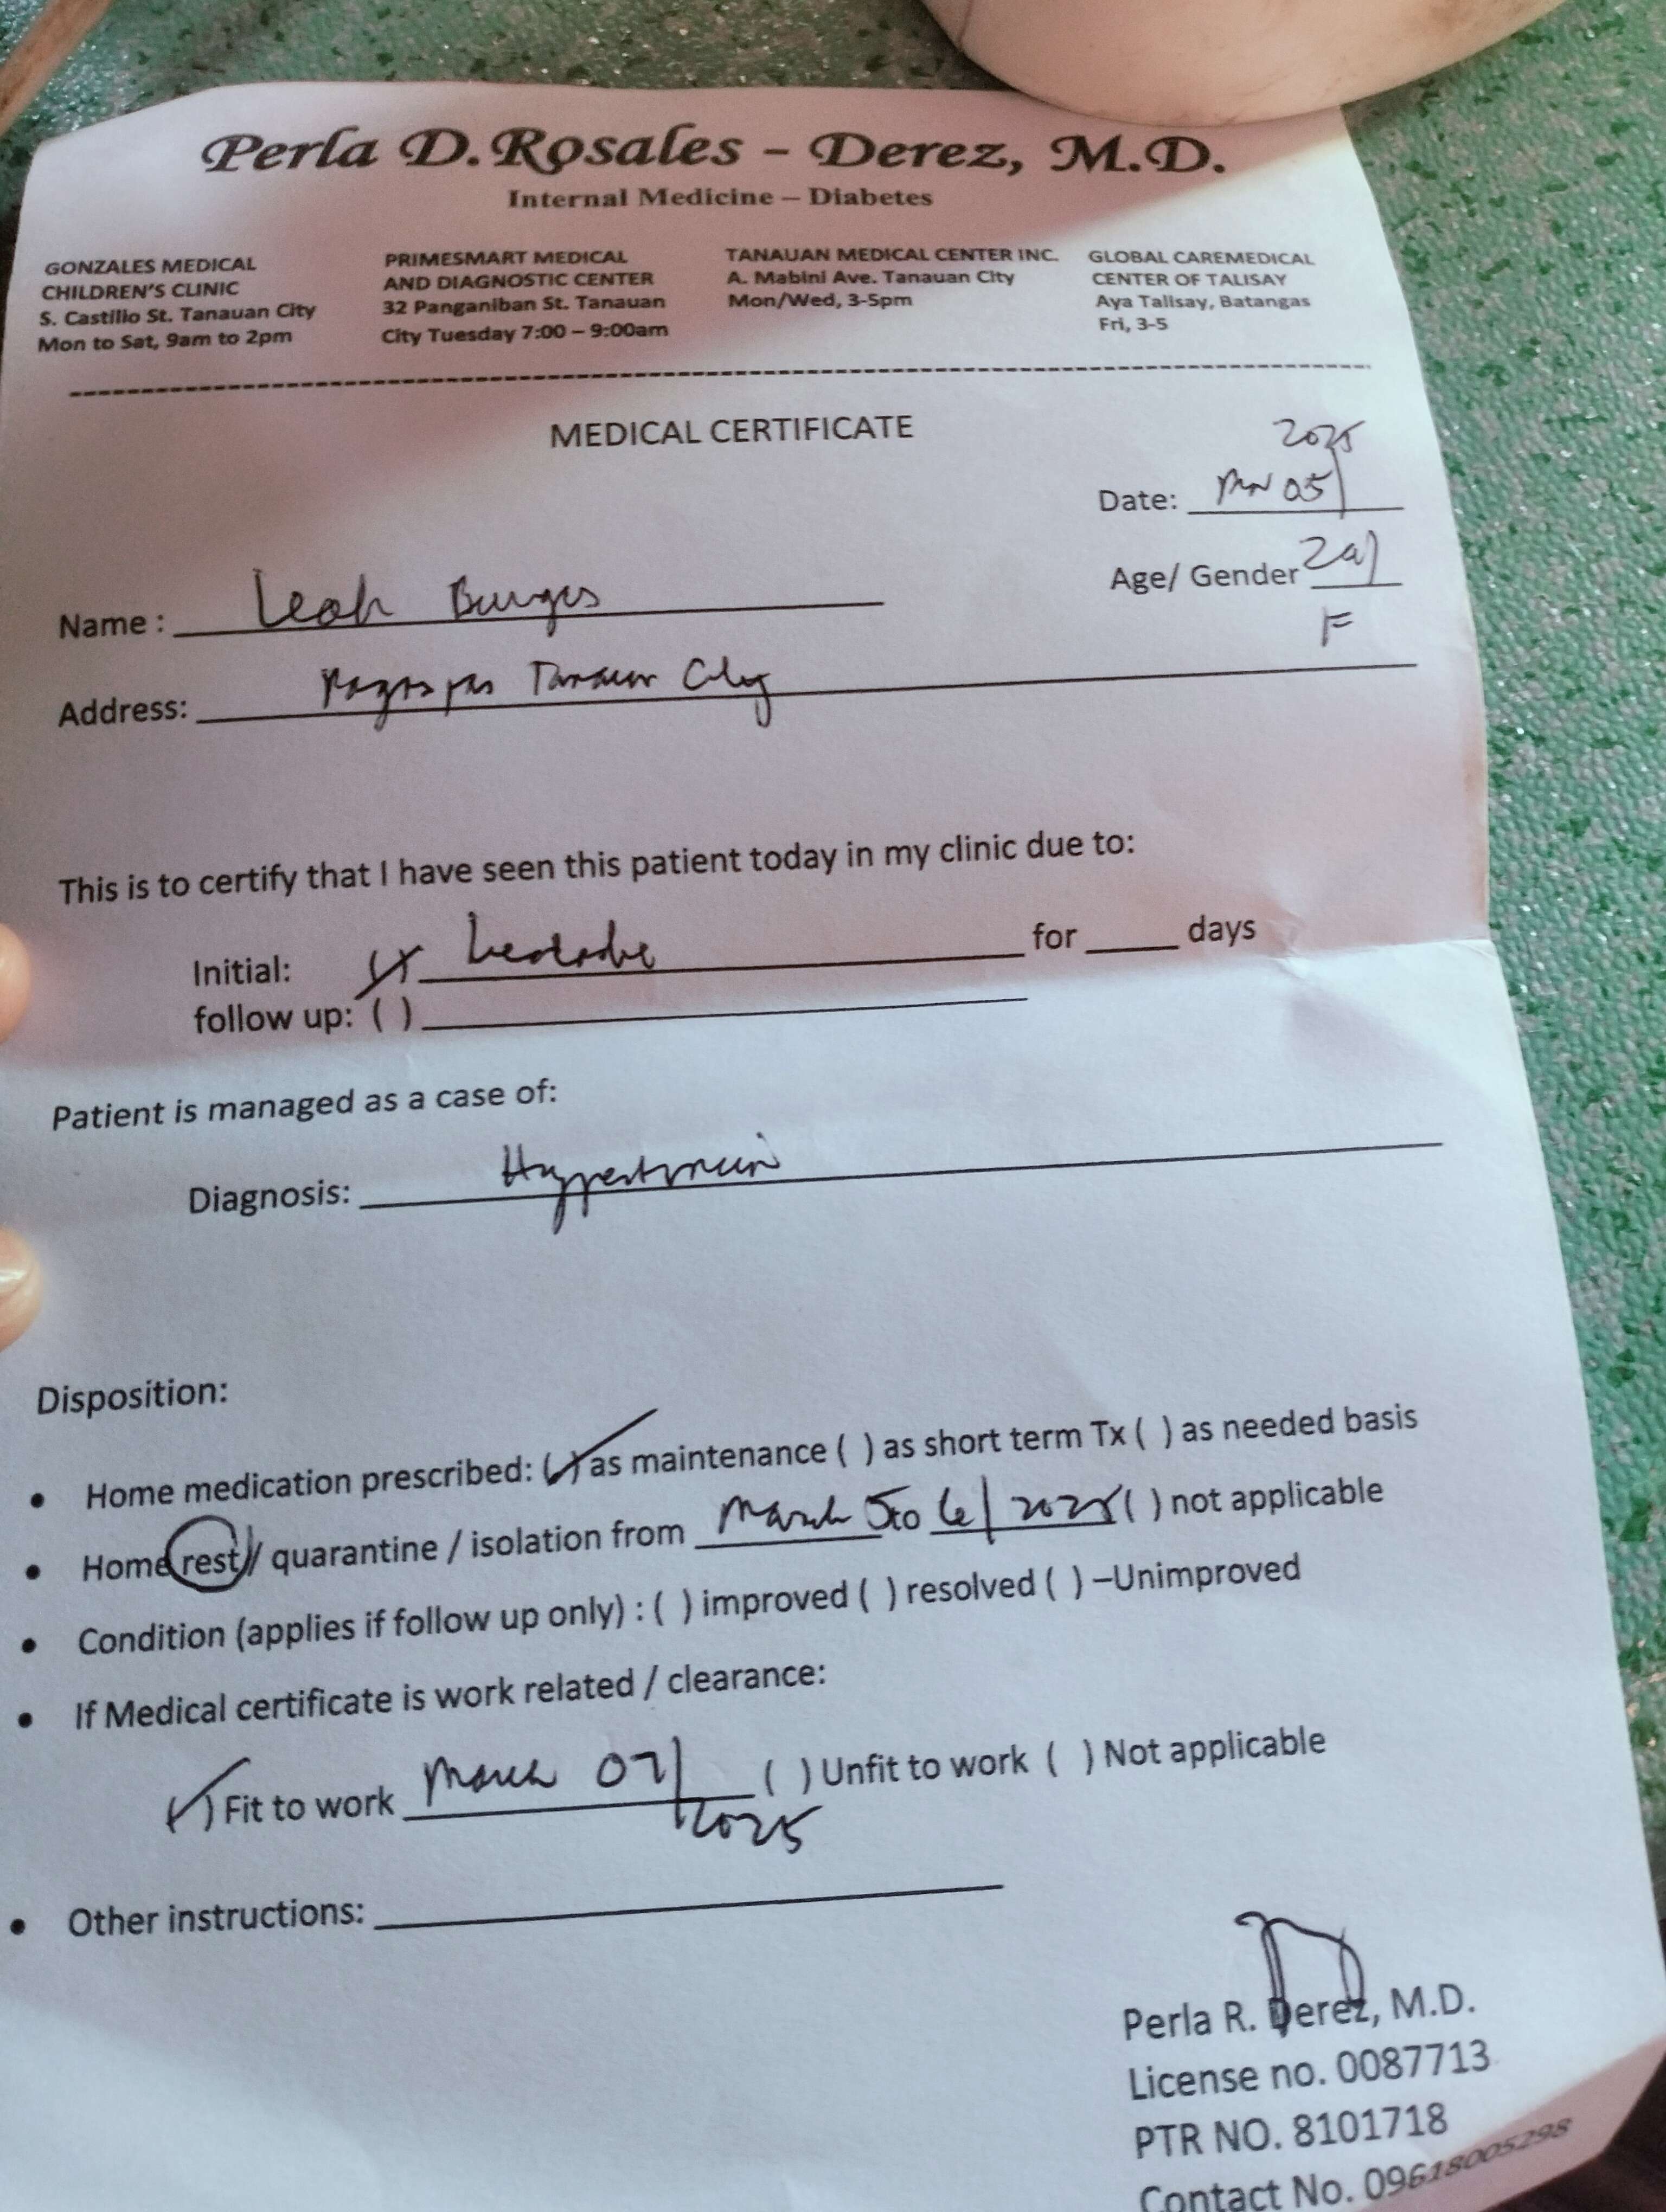 Perla D. Rosales - Derez, M.D.
Internal Medicine – Diabetes
GONZALES MEDICAL
CHILDREN'S CLINIC
S. Castillo St. Tanauan City
Mon to Sat, 9am to 2pm
PRIMESMART MEDICAL
AND DIAGNOSTIC CENTER
32 Panganiban St. Tanauan
City Tuesday 7:00 – 9:00am
TANAUAN MEDICAL CENTER INC.
A. Mabini Ave. Tanauan City
Mon/Wed, 3-5pm
GLOBAL CAREMEDICAL
CENTER OF TALISAY
Aya Talisay, Batangas
Fri, 3-5
MEDICAL CERTIFICATE
2025
Date: 05
Age/ Gender
F
Name : Leah
Address: Tanauan City
This is to certify that I have seen this patient today in my clinic due to:
Initial: headache for ____ days
follow up: ( )
Patient is managed as a case of:
Diagnosis: Hypertension
Disposition:
• Home medication prescribed: (✓) as maintenance ( ) as short term Tx ( ) as needed basis
• Home rest / quarantine / isolation from March 5 to 6/ 2025 ( ) not applicable
• Condition (applies if follow up only) : ( ) improved ( ) resolved ( ) –Unimproved
• If Medical certificate is work related / clearance:
(✓) Fit to work March 07/ ( ) Unfit to work ( ) Not applicable
2025
• Other instructions:
Perla R. Derez, M.D.
License no. 0087713
PTR NO. 8101718
Contact No. 09618005298